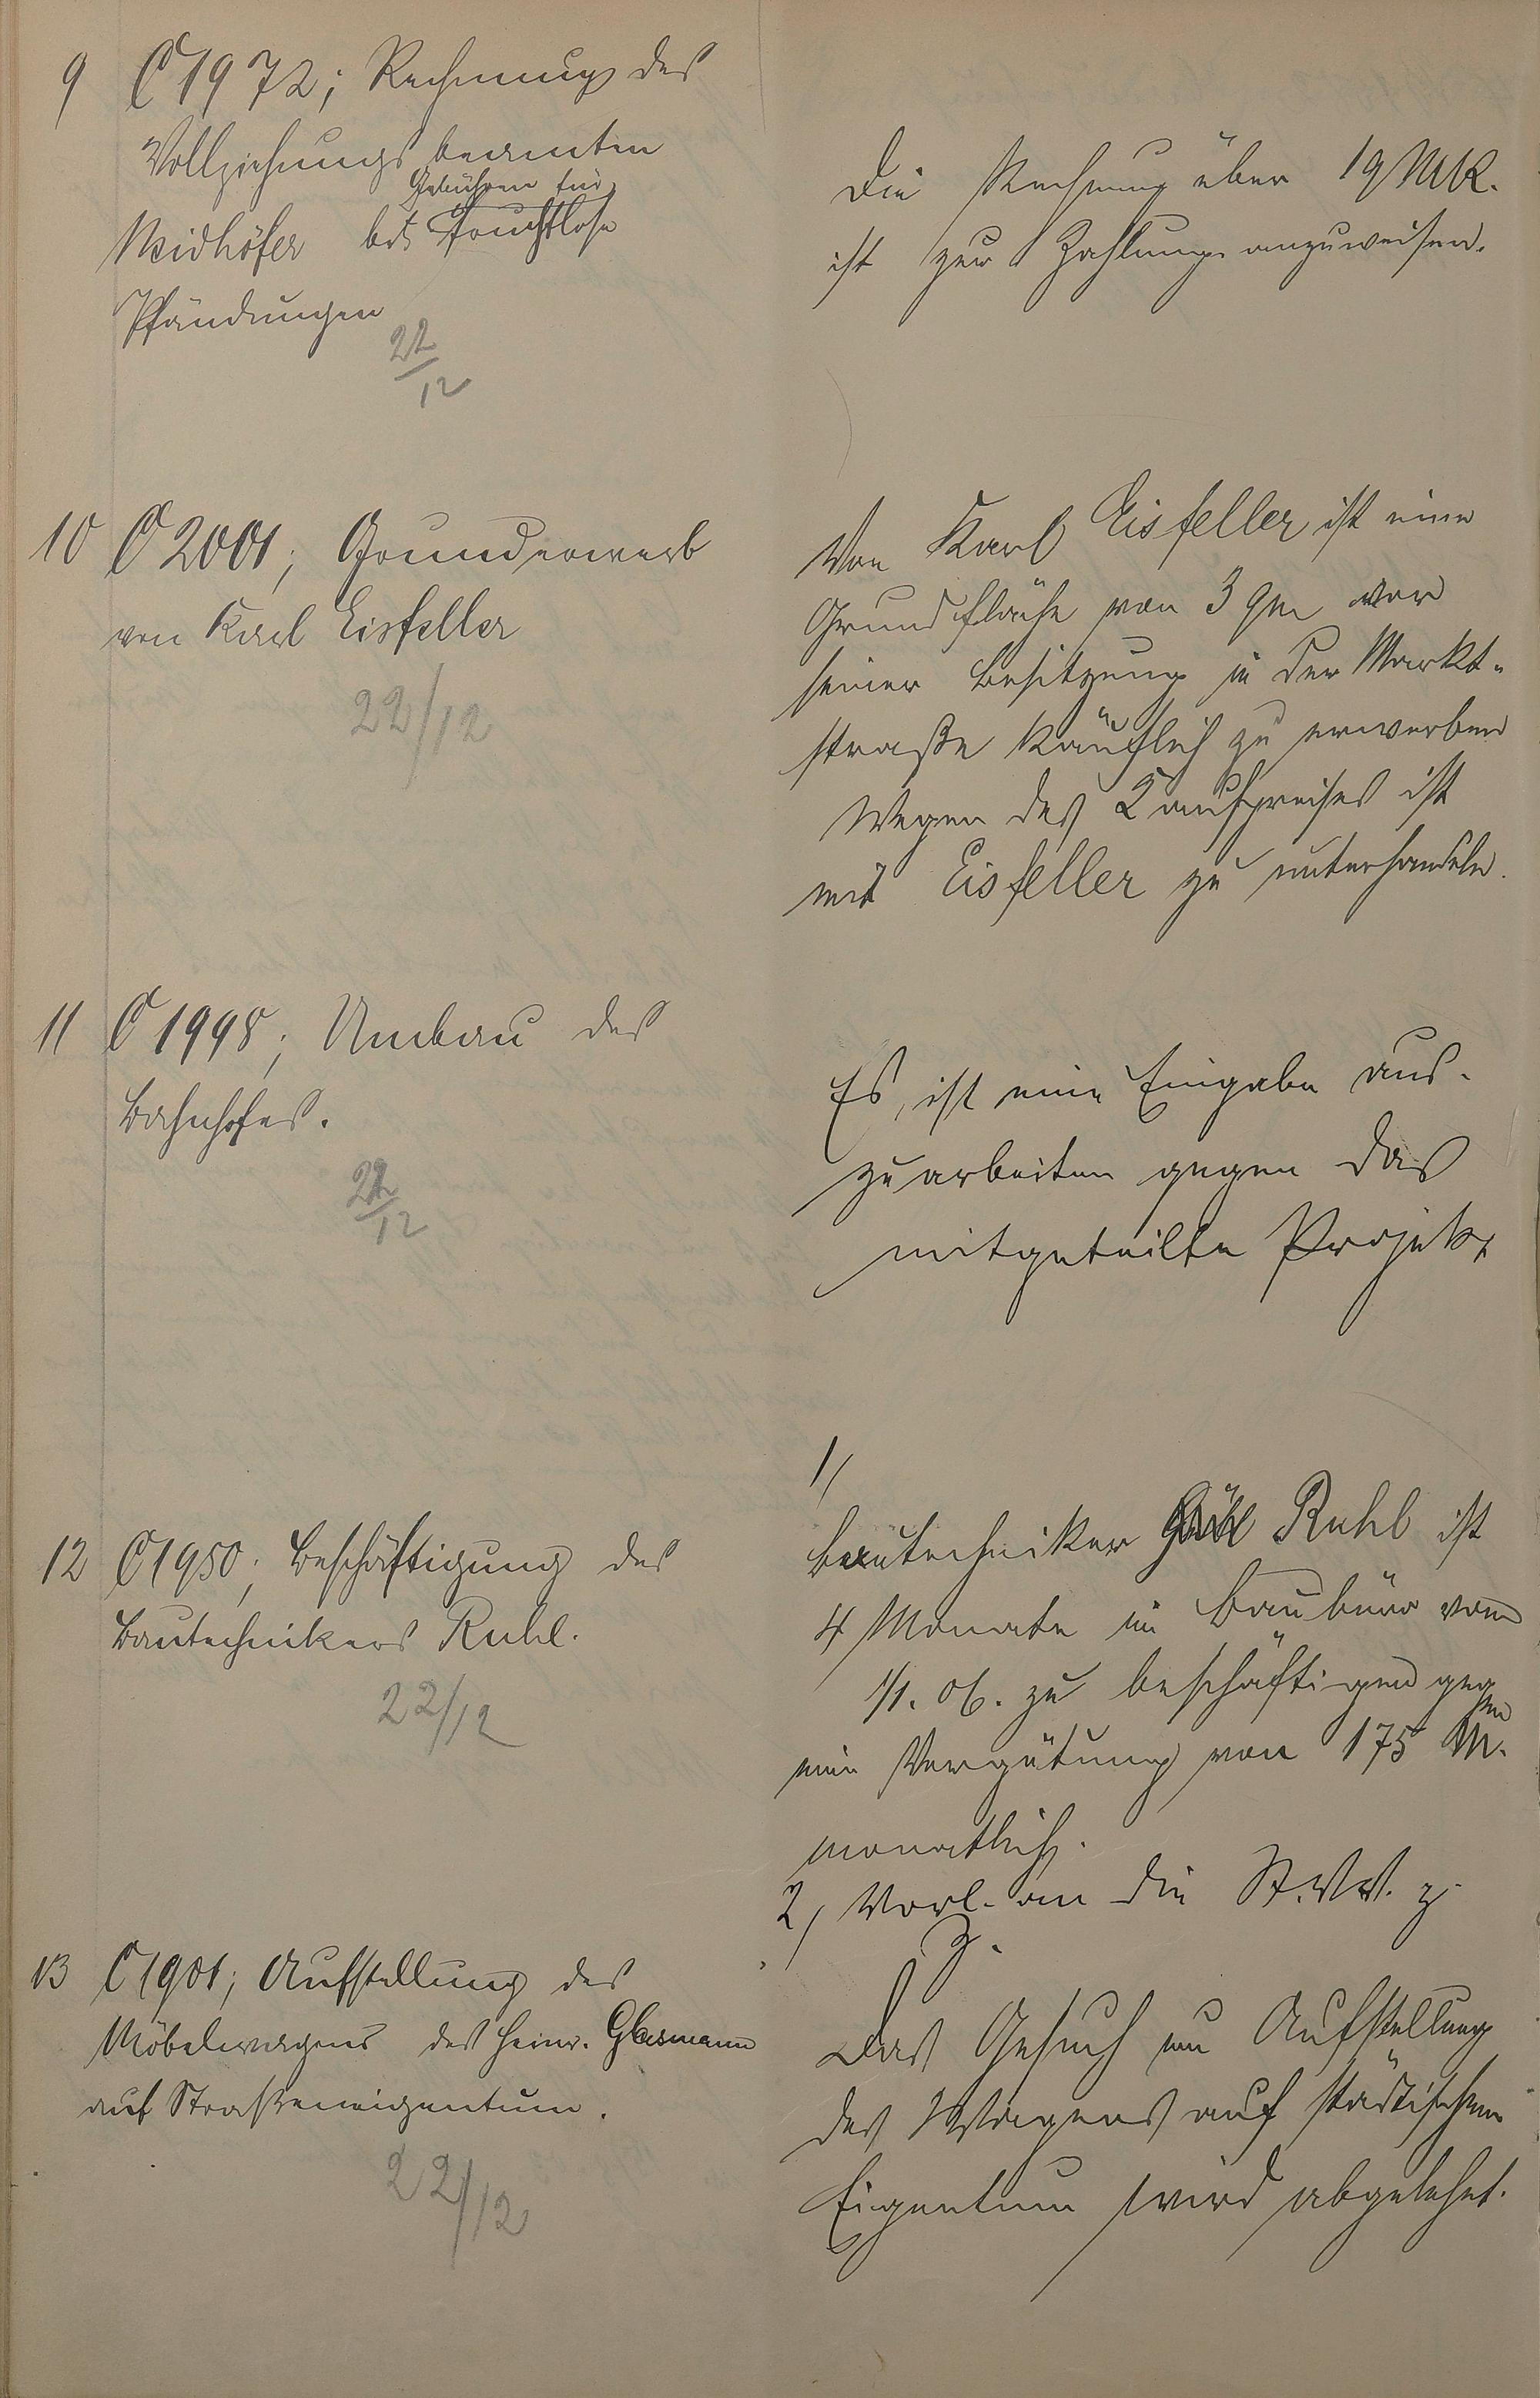 9 C 1972; Rechnung des
Vollziehungsbeamten
Gebühren für
Weidhöfer btr. fruchtlose
Pfändungen
22/12
Die Rechnung über 19 MK.
ist zur Zahlung anzuweisen.
10 C 2001; Grunderwerb
von Karl Eisfeller
22/12
Von Karl Eisfeller ist eine
Grundfläche von 3 qm vor
seiner Besitzung in der Markt-
straße käuflich zu erwerben
Wegen des Kaufpreises ist
mit Eisfeller zu unterhandeln.
11 C 1998; Umbau des
Bahnhofes.
22/12
Es ist eine Eingabe aus-
zuarbeiten gegen das
mitgeteilte Projekt
12 C 1950; Beschäftigung des
Bautechnikers Ruhl.
22/12
1/
Bautechniker Ruhl ist
4 Monate im Baubüro vom
1/1. 06. zu beschäftigen gegen
eine Vergütung von 175 M.
monatlich.
2/ Vorl. an die St. V. V. z.
Z.
13 C 1901; Aufstellung des
Möbelwagens des Heinr. Glasmann
auf Straßeneigentum.
22/12
Das Gesuch um Aufstellung
des Wagens auf städtischem
Eigentum wird abgelehnt.